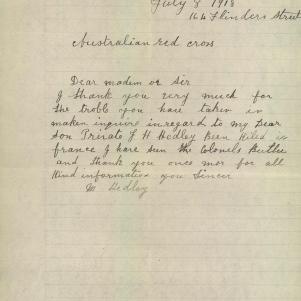 July 8 1918
164 Flinders Street
Australian red cross
Dear madem or Sir
I thank you very much for
the trobl you have taken in
maken inquire inregard to my Dear
Son Private J H Hedley Been Kiled in
france I have seen the Colonels Butler
and thank you once mor for all
Kind information you Sincer
M Hedley